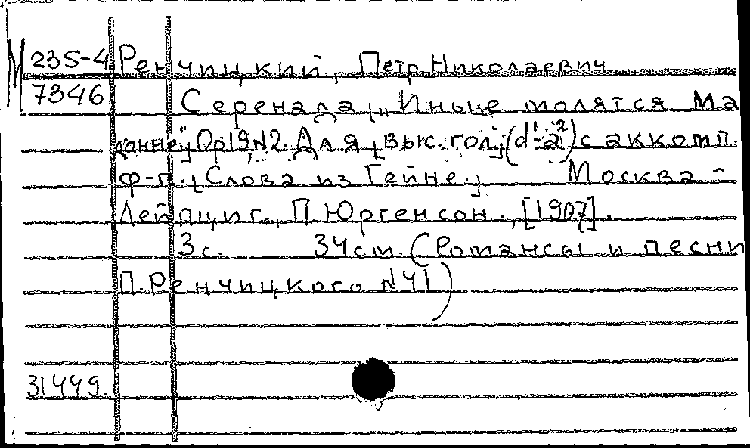 М 235-4 Ренчицкий, Петр Николаевич
7346 Серенада „Иные молятся Ма
донне" Ор19N2. Для выс. гол. (d¹-a²) с аккомп.
ф-п. Слова из Гейне. Москва-
Лейпциг, П. Юргенсон, [1907].
3с. 34см. (Романсы и песни
П. Ренчицкого N41)
31449.